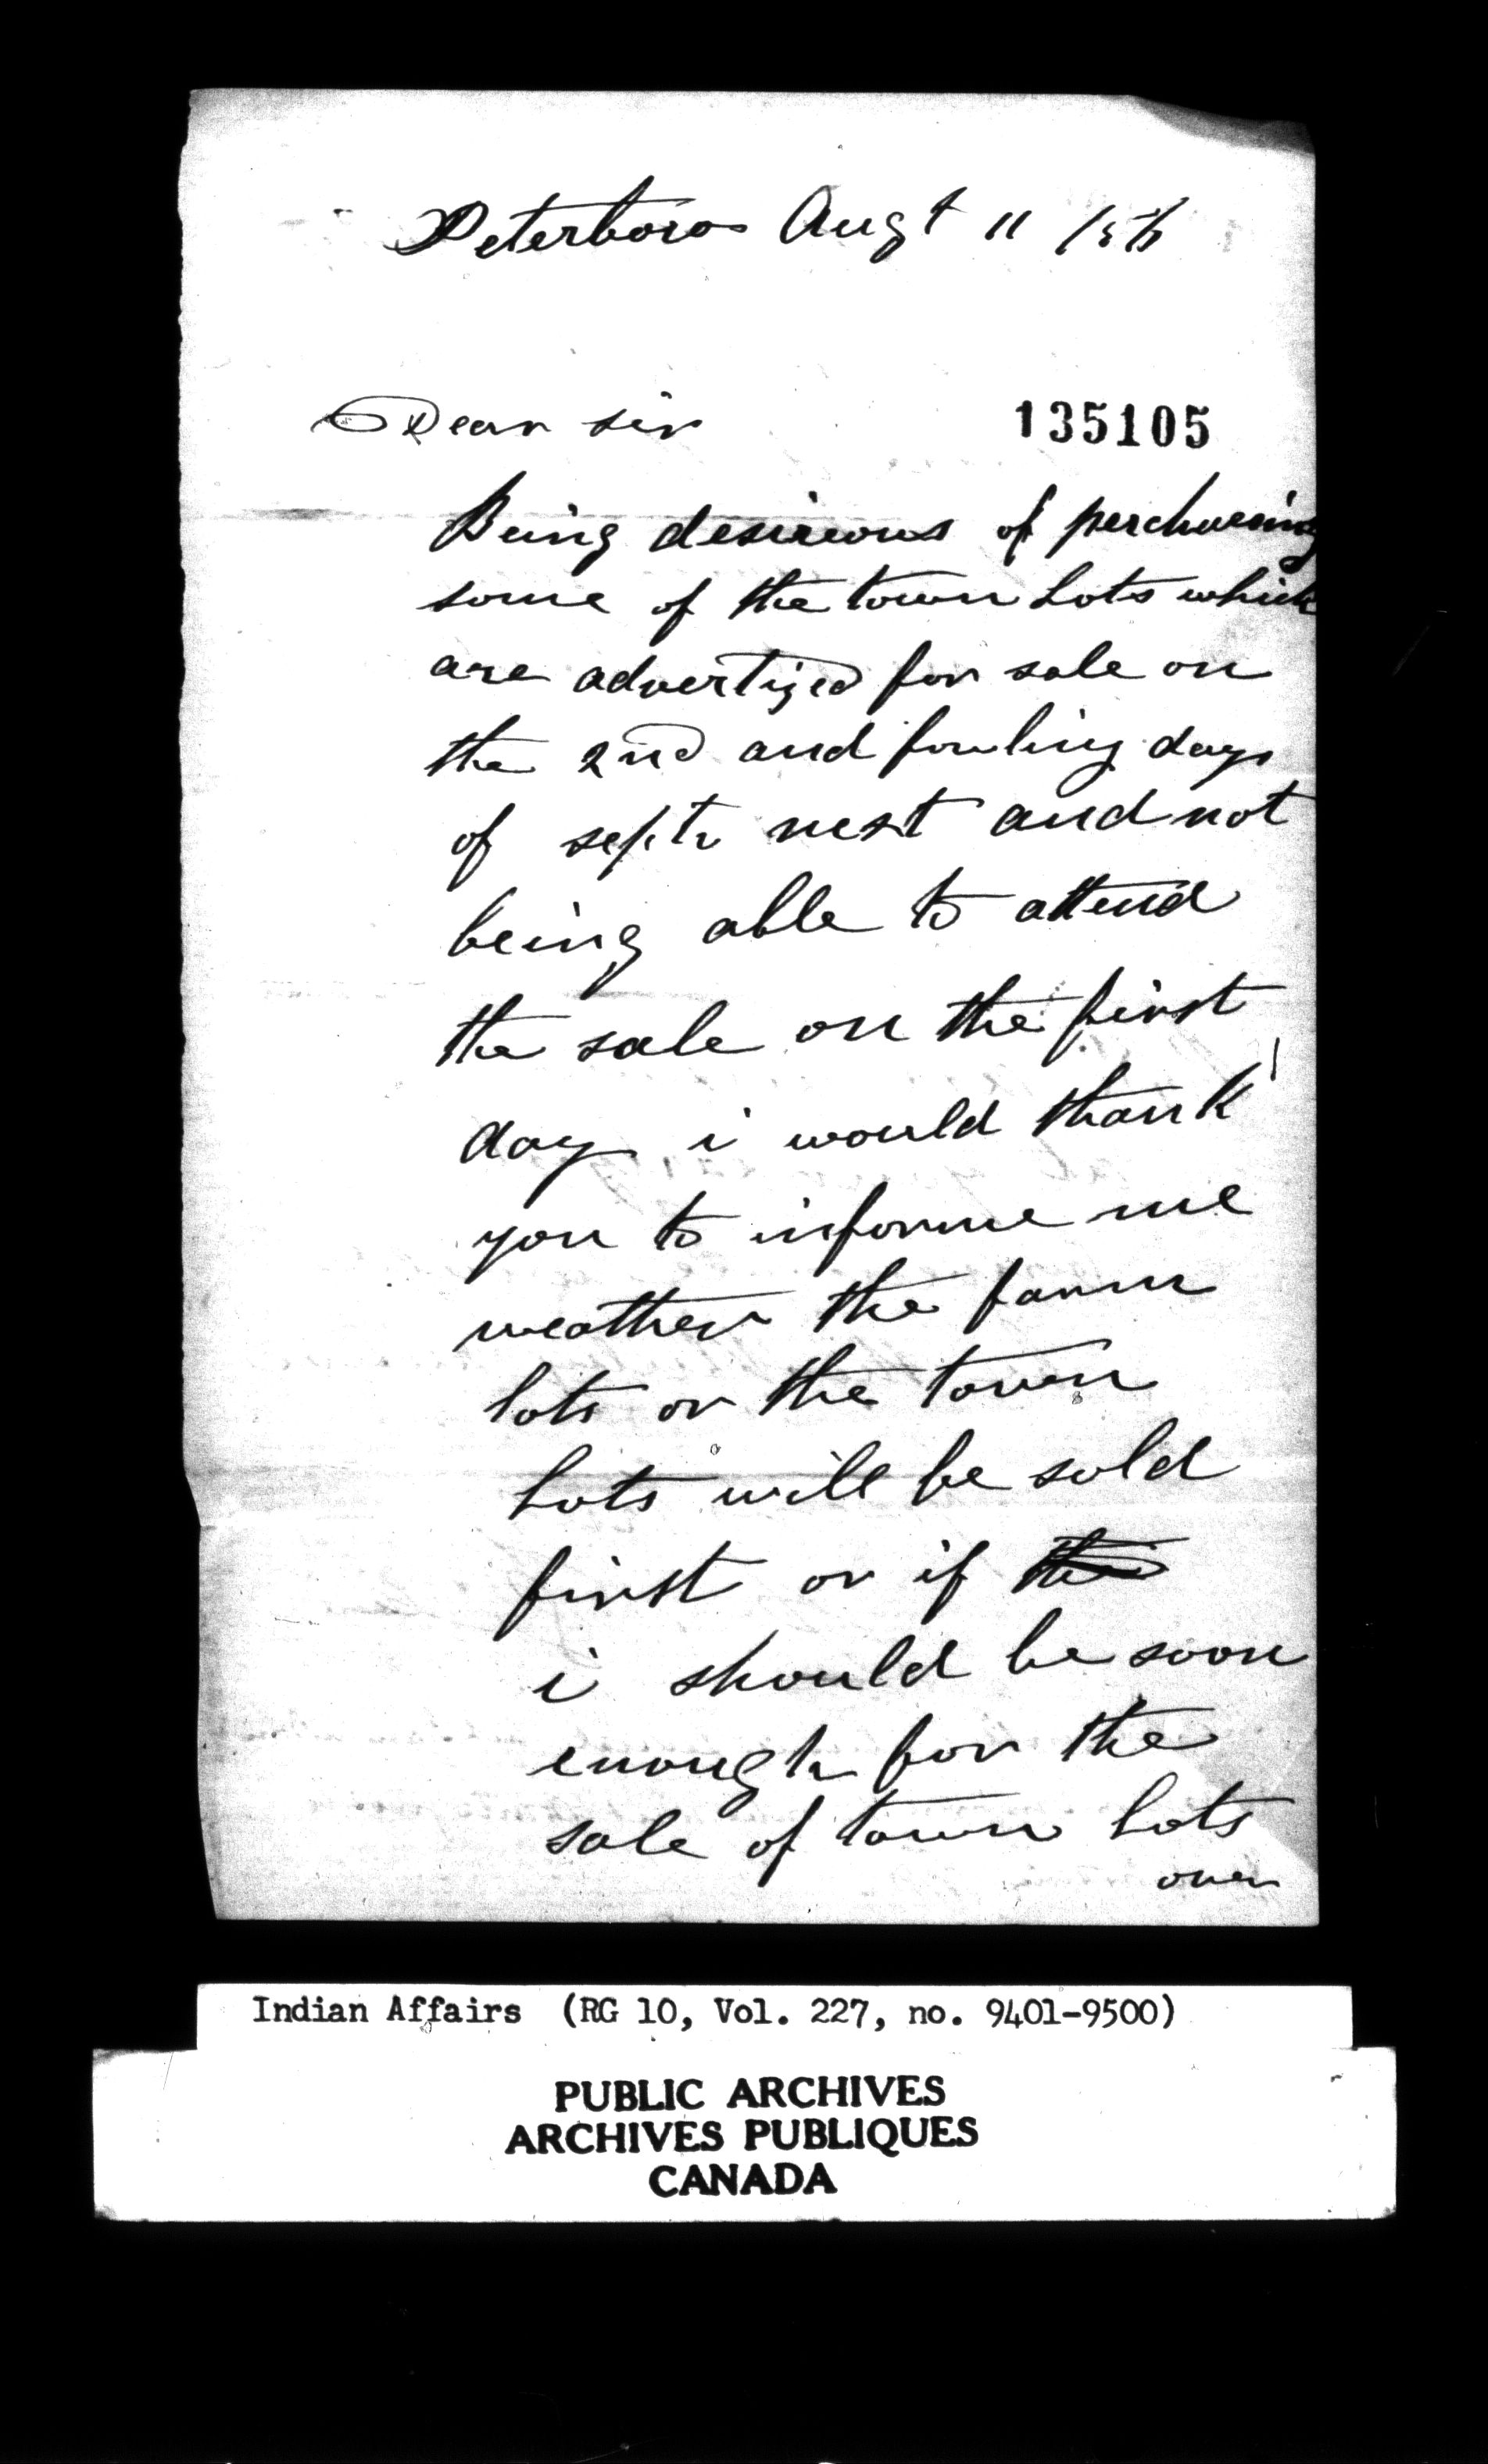 Peterboro Augt 11 /56
Dear sir
135105
Being desireous of perchuesing
some of the town Lots which
are advertized for sale on
the 2nd and fouling days
of septr next and not
being able to attend
the sale on the first
day i would thank
you to informe me
weather the farm
lots or the town
Lots will be sold
first or if the
i should be soon
enough for the
sale of town Lots
over
Indian Affairs (RG 10, Vol. 227, no. 9401-9500)
PUBLIC ARCHIVES
ARCHIVES PUBLIQUES
CANADA